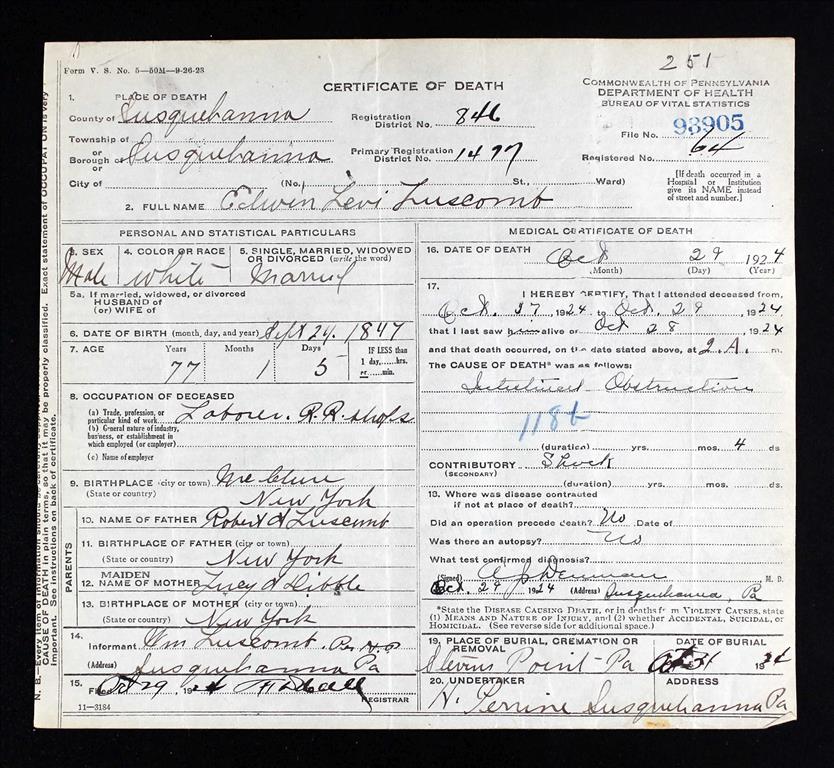 251
Form V. S. No. 5—50M—9-26-23
CERTIFICATE OF DEATH
COMMONWEALTH OF PENNSYLVANIA
DEPARTMENT OF HEALTH
BUREAU OF VITAL STATISTICS
1. PLACE OF DEATH
County of Susquehanna
Registration District No. 846
File No. 93905
Township of
or
Borough of Susquehanna
or
Primary Registration District No. 1497
Registered No. 64
City of (No. St., Ward)
[If death occurred in a Hospital or Institution give its NAME instead of street and number.]
2. FULL NAME Edwin Levi Luscomb
N. B.—Every item of information should be carefully supplied. AGE should be stated EXACTLY. PHYSICIANS should state
CAUSE OF DEATH in plain terms, so that it may be properly classified. Exact statement of OCCUPATION is very
important. See instructions on back of certificate.
PERSONAL AND STATISTICAL PARTICULARS
3. SEX 4. COLOR OR RACE 5. SINGLE, MARRIED, WIDOWED OR DIVORCED (write the word)
Male White Married
5a. If married, widowed, or divorced
HUSBAND of
(or) WIFE of
6. DATE OF BIRTH (month, day, and year) Sept 24. 1847
7. AGE Years Months Days IF LESS than
77 1 5 1 day,......hrs.
or ......min.
8. OCCUPATION OF DECEASED
(a) Trade, profession, or
particular kind of work Laborer. R.R. shops
(b) General nature of industry,
business, or establishment in
which employed (or employer)
(c) Name of employer
9. BIRTHPLACE (city or town) McClure
(State or country) New York
PARENTS
10. NAME OF FATHER Robert Luscomb
11. BIRTHPLACE OF FATHER (city or town)
(State or country) New York
12. MAIDEN NAME OF MOTHER Lucy Dibble
13. BIRTHPLACE OF MOTHER (city or town)
(State or country) New York
14.
Informant Wm Luscomb. Per H.P
(Address) Susquehanna Pa
15.
Filed Oct 29 1924
REGISTRAR
11—3184
MEDICAL CERTIFICATE OF DEATH
16. DATE OF DEATH Oct 29 1924
(Month) (Day) (Year)
17.
I HEREBY CERTIFY, That I attended deceased from,
Oct. 27 1924 to Oct. 29 1924
that I last saw him alive on Oct 28 1924
and that death occurred, on the date stated above, at 2 A. m.
The CAUSE OF DEATH* was as follows:
Intestinal Obstruction
118b
(duration) yrs. mos. 4 ds
CONTRIBUTORY Shock
(SECONDARY)
(duration) yrs. mos. ds.
18. Where was disease contracted
if not at place of death?
Did an operation precede death? No Date of
Was there an autopsy? No
What test confirmed diagnosis?
(Signed) A J Denman M. D.
Oct. 29 1924 (Address) Susquehanna, Pa
*State the DISEASE CAUSING DEATH, or in deaths from VIOLENT CAUSES, state
(1) MEANS AND NATURE OF INJURY, and (2) whether ACCIDENTAL, SUICIDAL, or
HOMICIDAL. (See reverse side for additional space.)
19. PLACE OF BURIAL, CREMATION OR REMOVAL DATE OF BURIAL
Stevens Point - Pa Oct 31 1924
20. UNDERTAKER ADDRESS
H. Perrine Susquehanna Pa